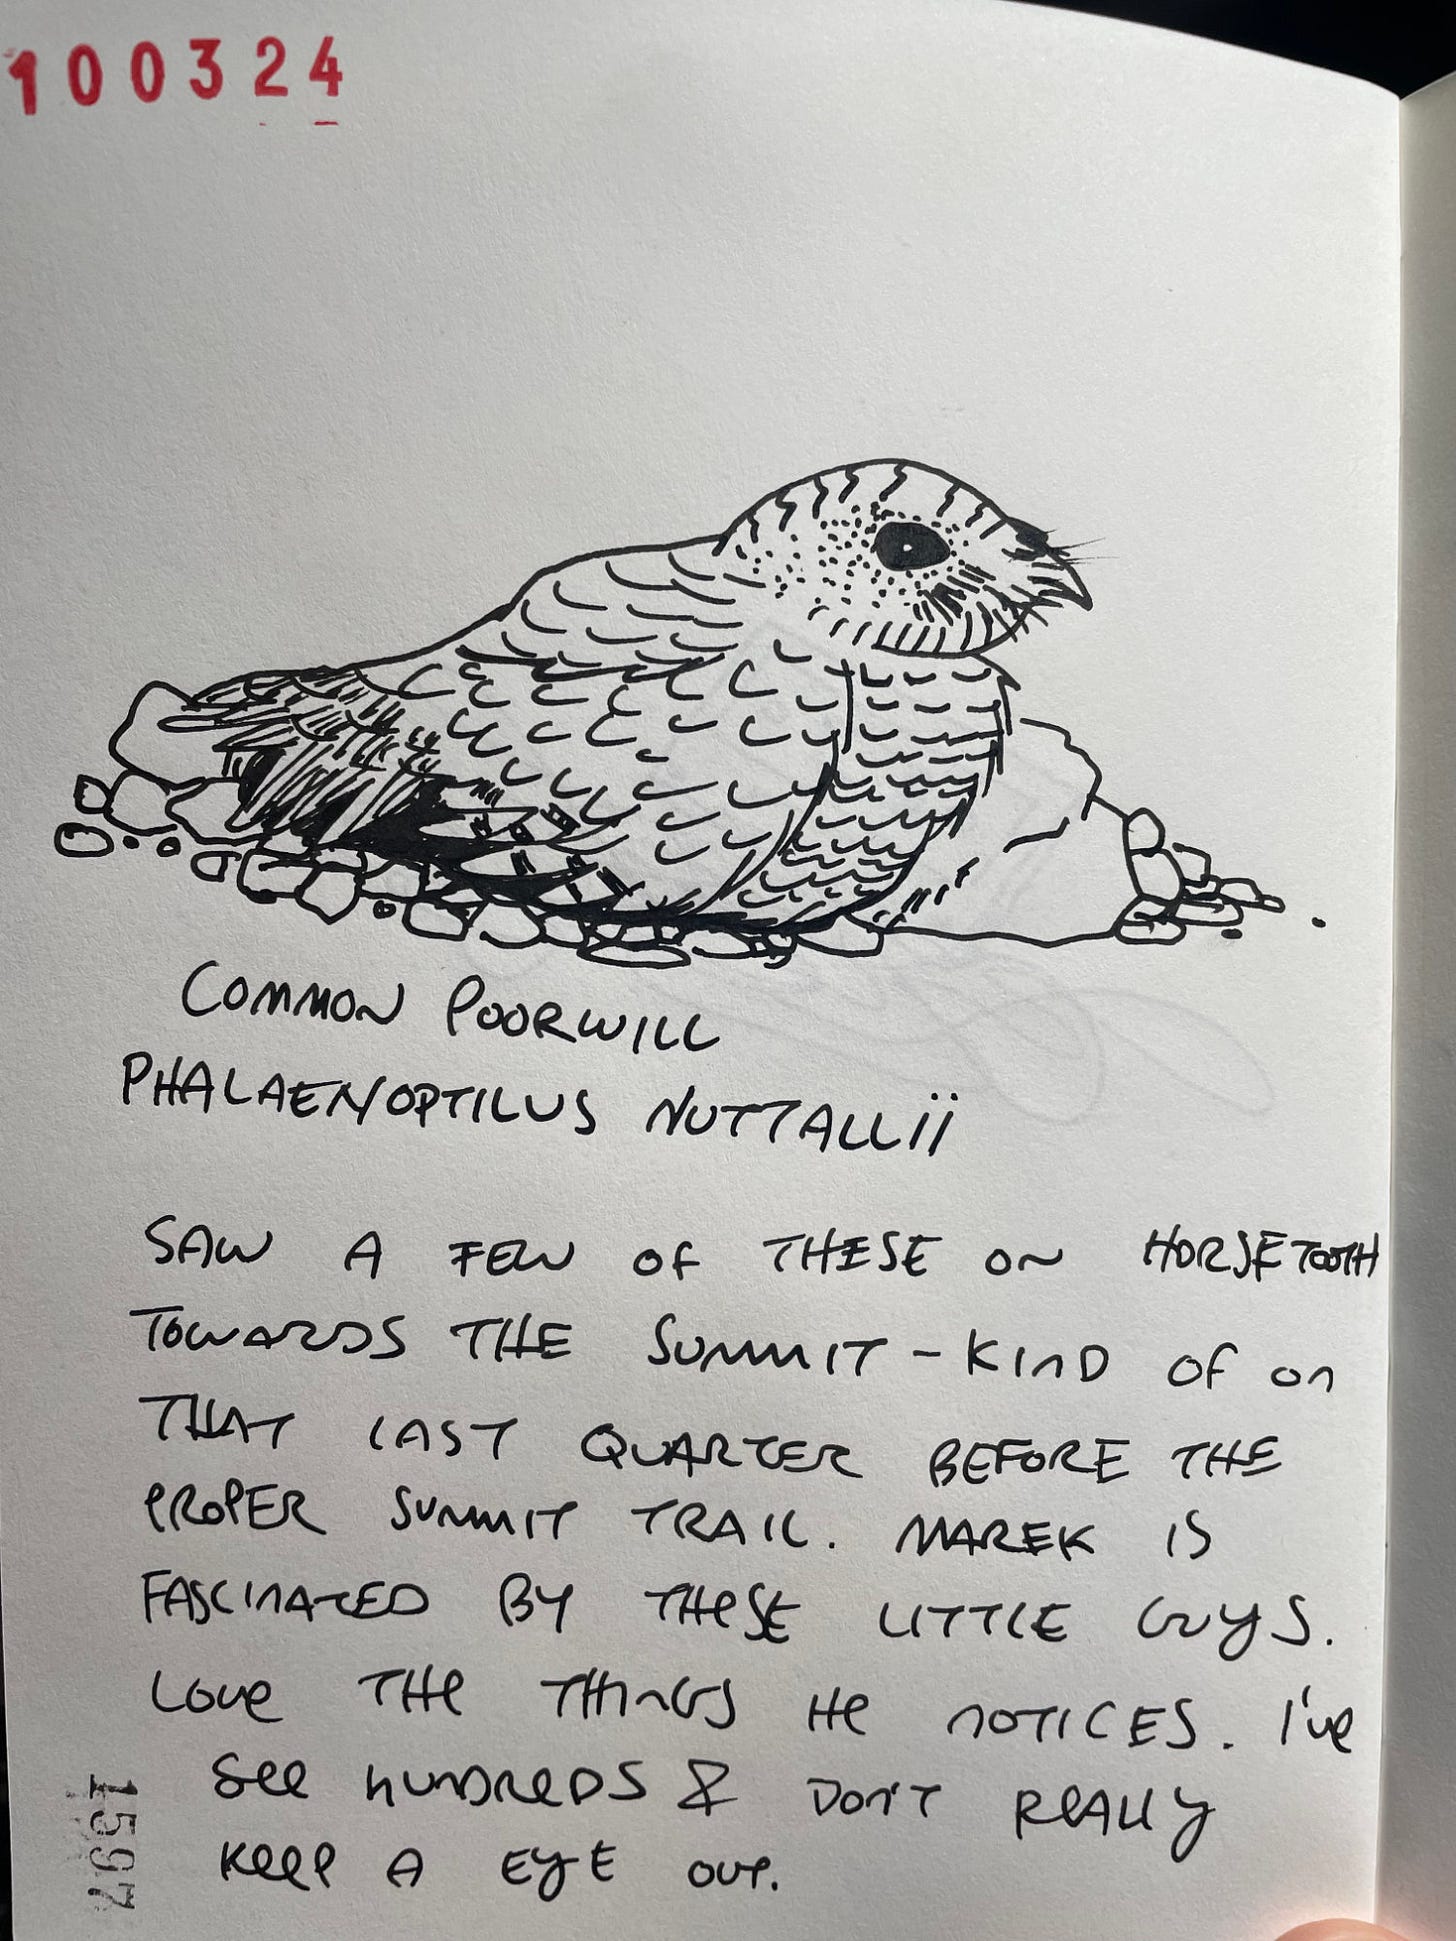 100324
COMMON POORWILL
PHALAENOPTILUS NUTTALLii
SAW A FEW OF THESE ON HORSETOOTH
TOWARDS THE SUMMIT - KIND OF ON
THAT LAST QUARTER BEFORE THE
PROPER SUMMIT TRAIL. MAREK IS
FASCINATED BY THESE LITTLE GUYS.
LOVE THE THINGS HE NOTICES. I'VE
SEE HUNDREDS & DON'T REALLY
KEEP A EYE OUT.
1597